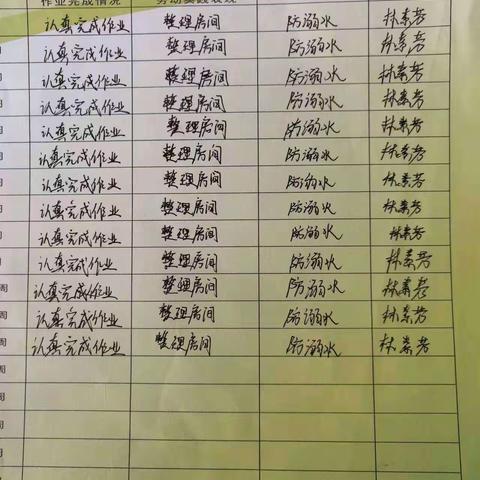 作业完成情况 劳动实践表现
认真完成作业 整理房间 防溺水 林素芳
认真完成作业 整理房间 防溺水 林素芳
认真完成作业 整理房间 防溺水 林素芳
认真完成作业 整理房间 防溺水 林素芳
认真完成作业 整理房间 防溺水 林素芳
认真完成作业 整理房间 防溺水 林素芳
周 认真完成作业 整理房间 防溺水 林素芳
周 认真完成作业 整理房间 防溺水 林素芳
周 认真完成作业 整理房间 防溺水 林素芳
周 认真完成作业 整理房间 防溺水 林素芳
周 认真完成作业 整理房间 防溺水 林素芳
周 认真完成作业 整理房间 防溺水 林素芳
周 认真完成作业 整理房间 防溺水 林素芳
周
周